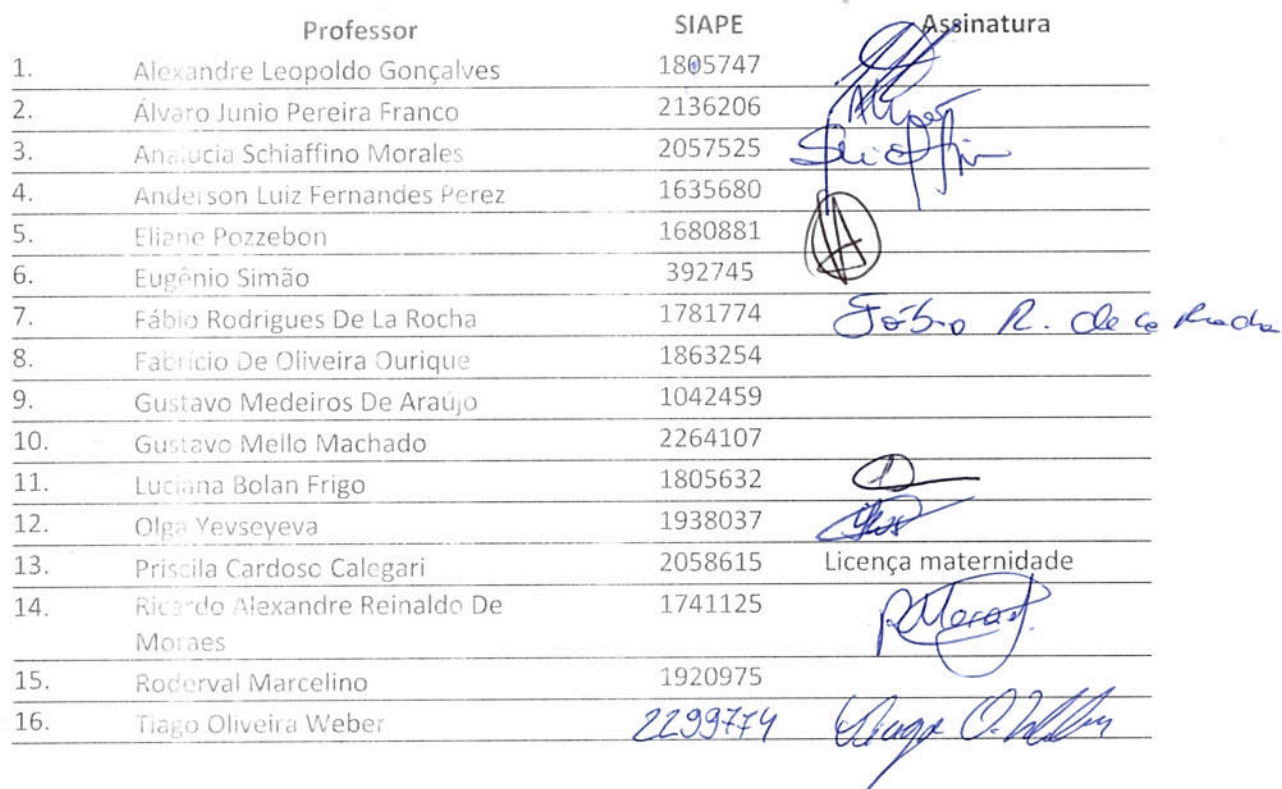 Professor SIAPE Assinatura
1. Alexandre Leopoldo Gonçalves 1805747
2. Álvaro Junio Pereira Franco 2136206
3. Analucia Schiaffino Morales 2057525
4. Anderson Luiz Fernandes Perez 1635680
5. Eliane Pozzebon 1680881
6. Eugênio Simão 392745
7. Fábio Rodrigues De La Rocha 1781774 Fábio R. de la Rocha
8. Fabrício De Oliveira Ourique 1863254
9. Gustavo Medeiros De Araújo 1042459
10. Gustavo Mello Machado 2264107
11. Luciana Bolan Frigo 1805632
12. Olga Yevseyeva 1938037
13. Priscila Cardoso Calegari 2058615 Licença maternidade
14. Ricardo Alexandre Reinaldo De 1741125
Moraes
15. Roderval Marcelino 1920975
16. Tiago Oliveira Weber 2299774